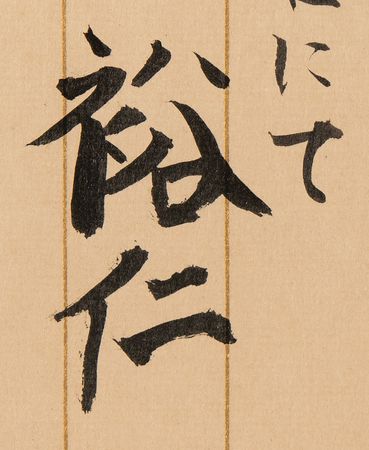 にて
裕仁